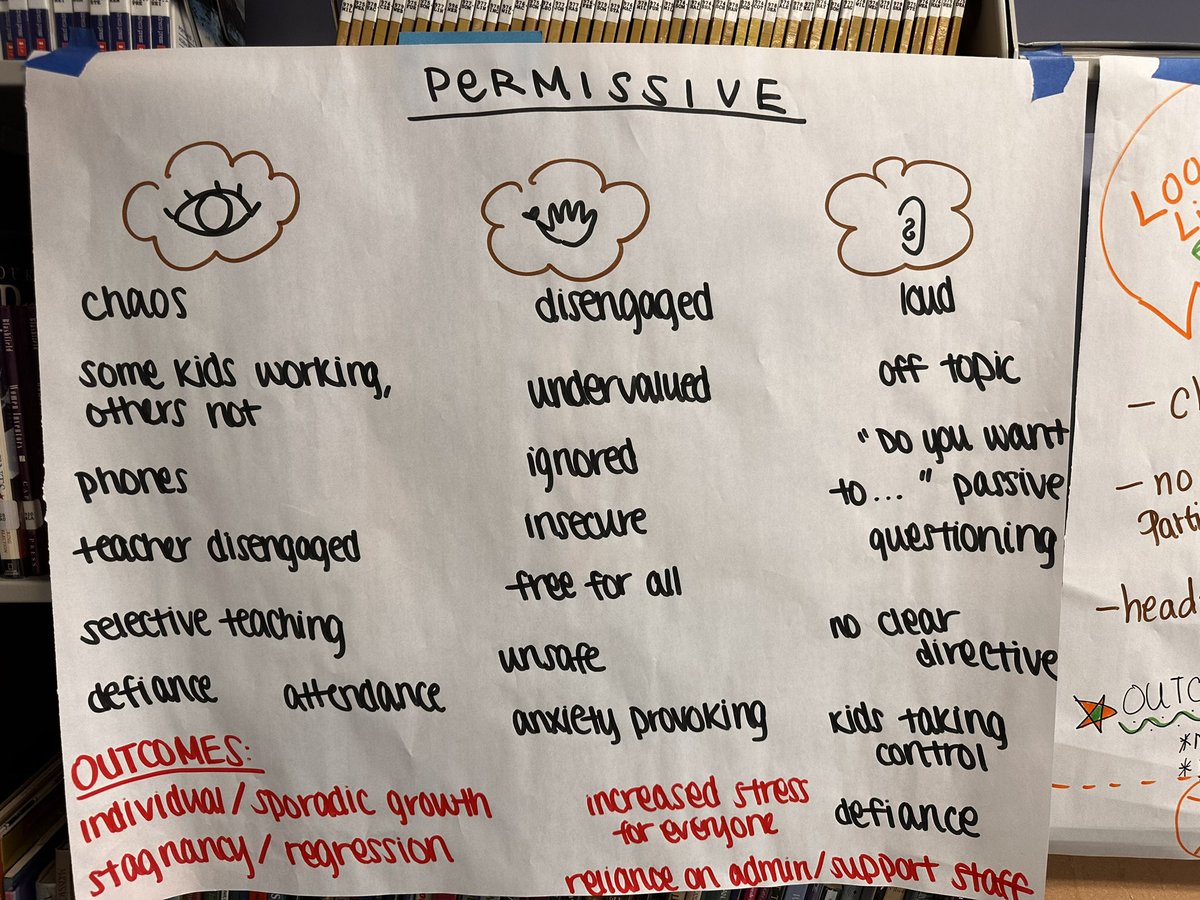 PERMISSIVE
chaos
some kids working,
others not
phones
teacher disengaged
selective teaching
defiance attendance
disengaged
undervalued
ignored
insecure
free for all
unsafe
anxiety provoking
loud
off topic
"Do you want
to..." passive
questioning
no clear
directive
kids taking
control
defiance
OUTCOMES:
individual/sporadic growth
stagnancy/regression
increased stress
for everyone
reliance on admin/support staff
LOO
Li
- no
Parti
- head
OUTCO